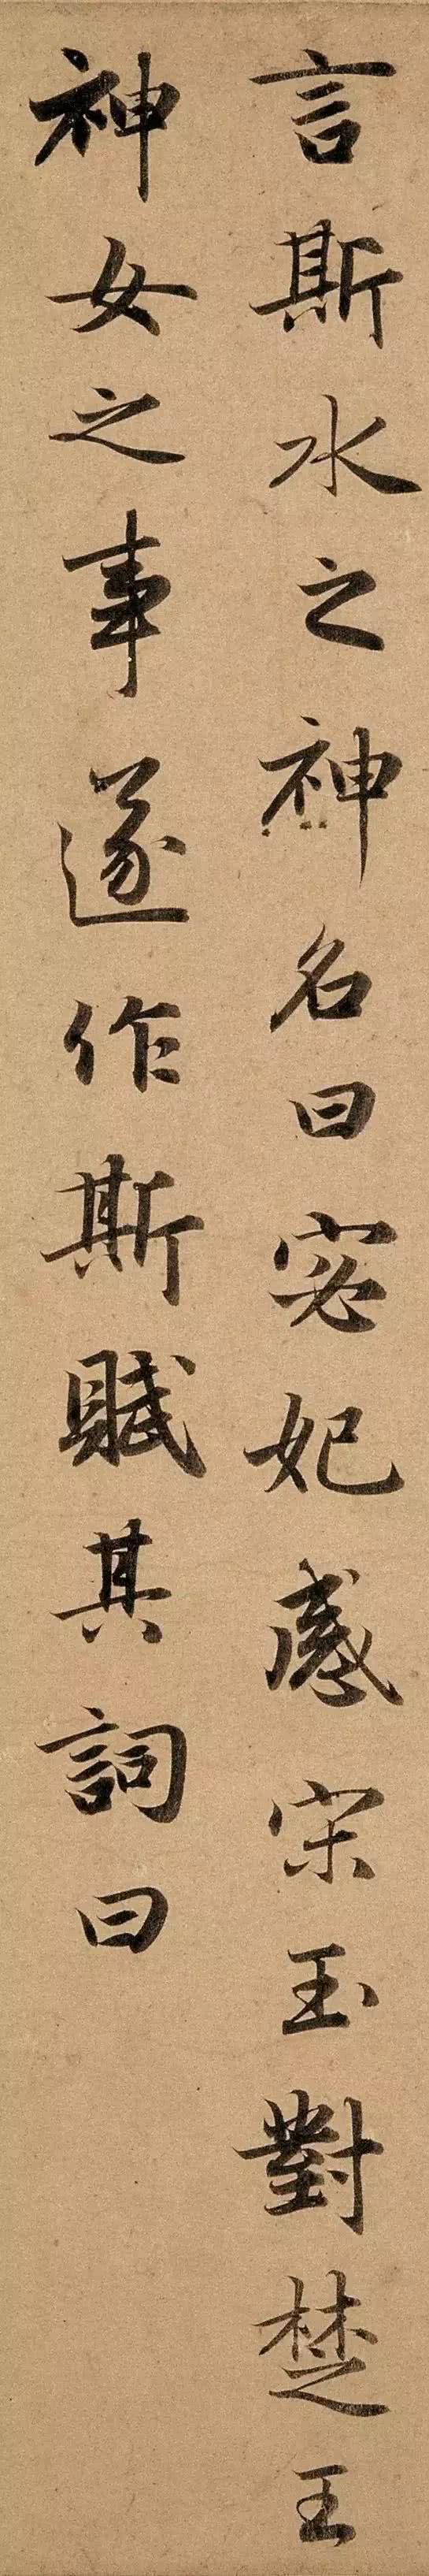 言斯水之神名曰宓妃感宋玉對楚王
神女之事遂作斯賦其詞曰